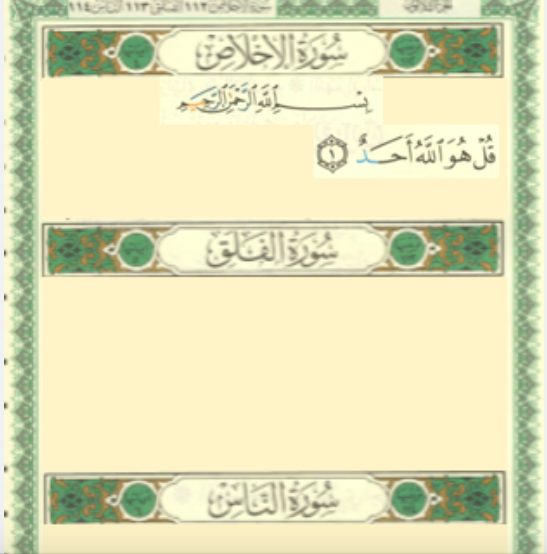 سورة الإخلاص ١١٢ الفلق ١١٣ الناس ١١٤
سُورَةُ الإِخْلَاصِ
بِسْمِ ٱللَّهِ ٱلرَّحْمَٰنِ ٱلرَّحِيمِ
قُلْ هُوَ ٱللَّهُ أَحَدٌ ١
سُورَةُ الْفَلَقِ
سُورَةُ النَّاسِ